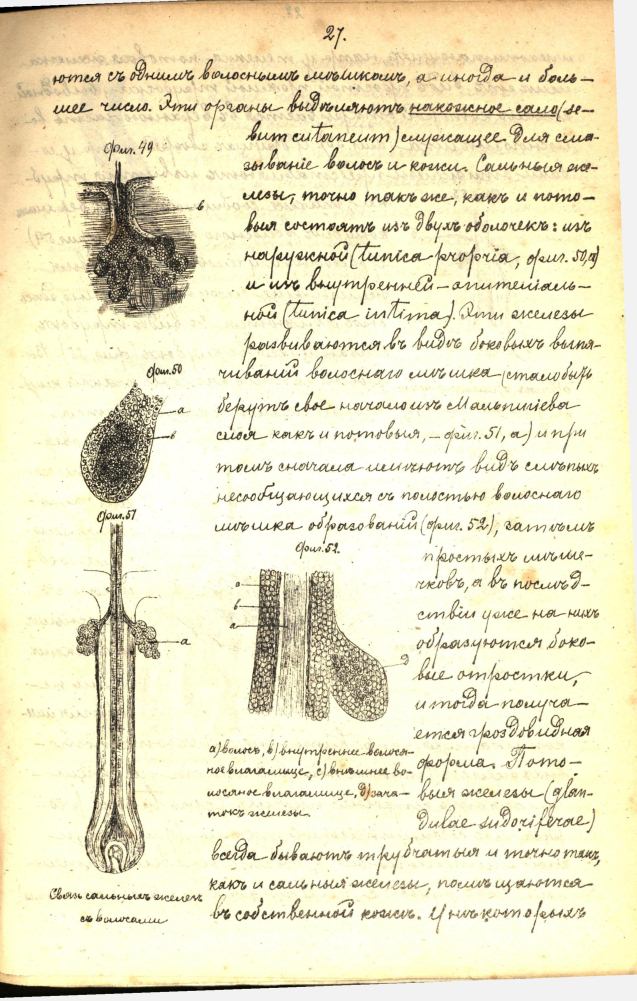 27.
ются съ однимъ волоснымъ мѣшкомъ, а иногда и боль-
шее число. Эти органы выдѣляютъ накожное сало (se-
bum cutaneum) служащее для сма-
зыванiе волосъ и кожи. Сальныя же-
лезы, точно такъ же, какъ и пото-
выя состоятъ изъ двухъ оболочекъ: изъ
наружной (tunica propria, фиг. 50, а)
и изъ внутренней - эпителiаль-
ной (tunica intima). Эти железы
развиваются въ видѣ боковыхъ выпя-
чиванiй волоснаго мѣшка (стало быть
берутъ свое начало изъ Мальпигiева
слоя какъ и потовыя, - фиг. 51, а) и при
томъ сначала имѣютъ видъ слѣпыхъ
несообщающихся съ полостью волоснаго
мѣшка образованiй (фиг. 52), затѣмъ
простыхъ мѣше-
чковъ, а въ послѣд-
ствiи уже на нихъ
образуются боко-
вые отростки,
и тогда получа-
ется гроздовидная
форма. Пото-
выя железы (glan-
dulae sudoriferae)
всегда бываютъ трубчатыя и точно такъ,
какъ и сальныя железы, помѣщаются
въ собственной кожѣ. У нѣкоторыхъ
фиг. 49
в
фиг. 50
а
в
фиг. 51
а
Связь сальныхъ железъ
съ волосами
фиг. 52.
а
в
а
д
а) волосъ, в) внутреннее волося-
ное влагалище, с) внѣшнее во-
лосяное влагалище, д) зача-
токъ железы.